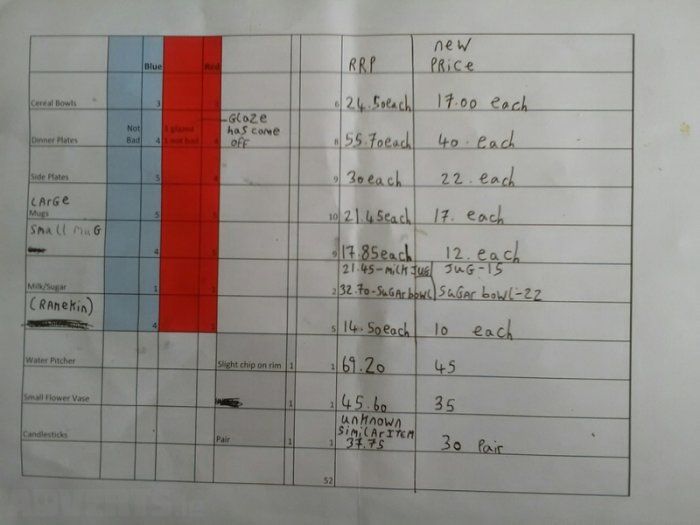 new
Blue Red RRP PRice
Cereal Bowls 3 3 6 24.50each 17.00 each
Glaze
Not 1 glazed has come
Dinner Plates Bad 4 1 not bad 4 off 8 55.70each 40. each
Side Plates 5 4 9 30each 22. each
LARge
Mugs 5 5 10 21.45each 17. each
Small mug
4 5 9 17.85each 12. each
21.45-milk Jug Jug-15
Milk/Sugar 1 1 2 32.70-SugAr bowl SugAr bowl-22
(RAmekin)
4 1 5 14.50each 10 each
Water Pitcher Slight chip on rim 1 1 69.20 45
Small Flower Vase 1 1 45.60 35
unknown
SimilAr ITEM
Candlesticks Pair 1 1 37.75 30 Pair
52
ADVERTS.ie